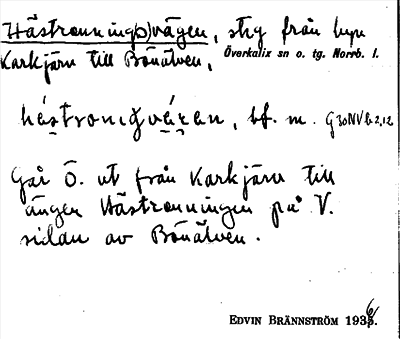 Hästronning(s)vägen, stig från byn
Karkjärn till Bönälven,
Överkalix sn o. tg. Norrb. l.
hástroniǧvä́ʒan, bf. m. G 30 NV b. 2, 12
Går Ö. ut från Karkjärn till
ängen Hästronningen på V.
sidan av Bönälven.
EDVIN BRÄNNSTRÖM 1936.